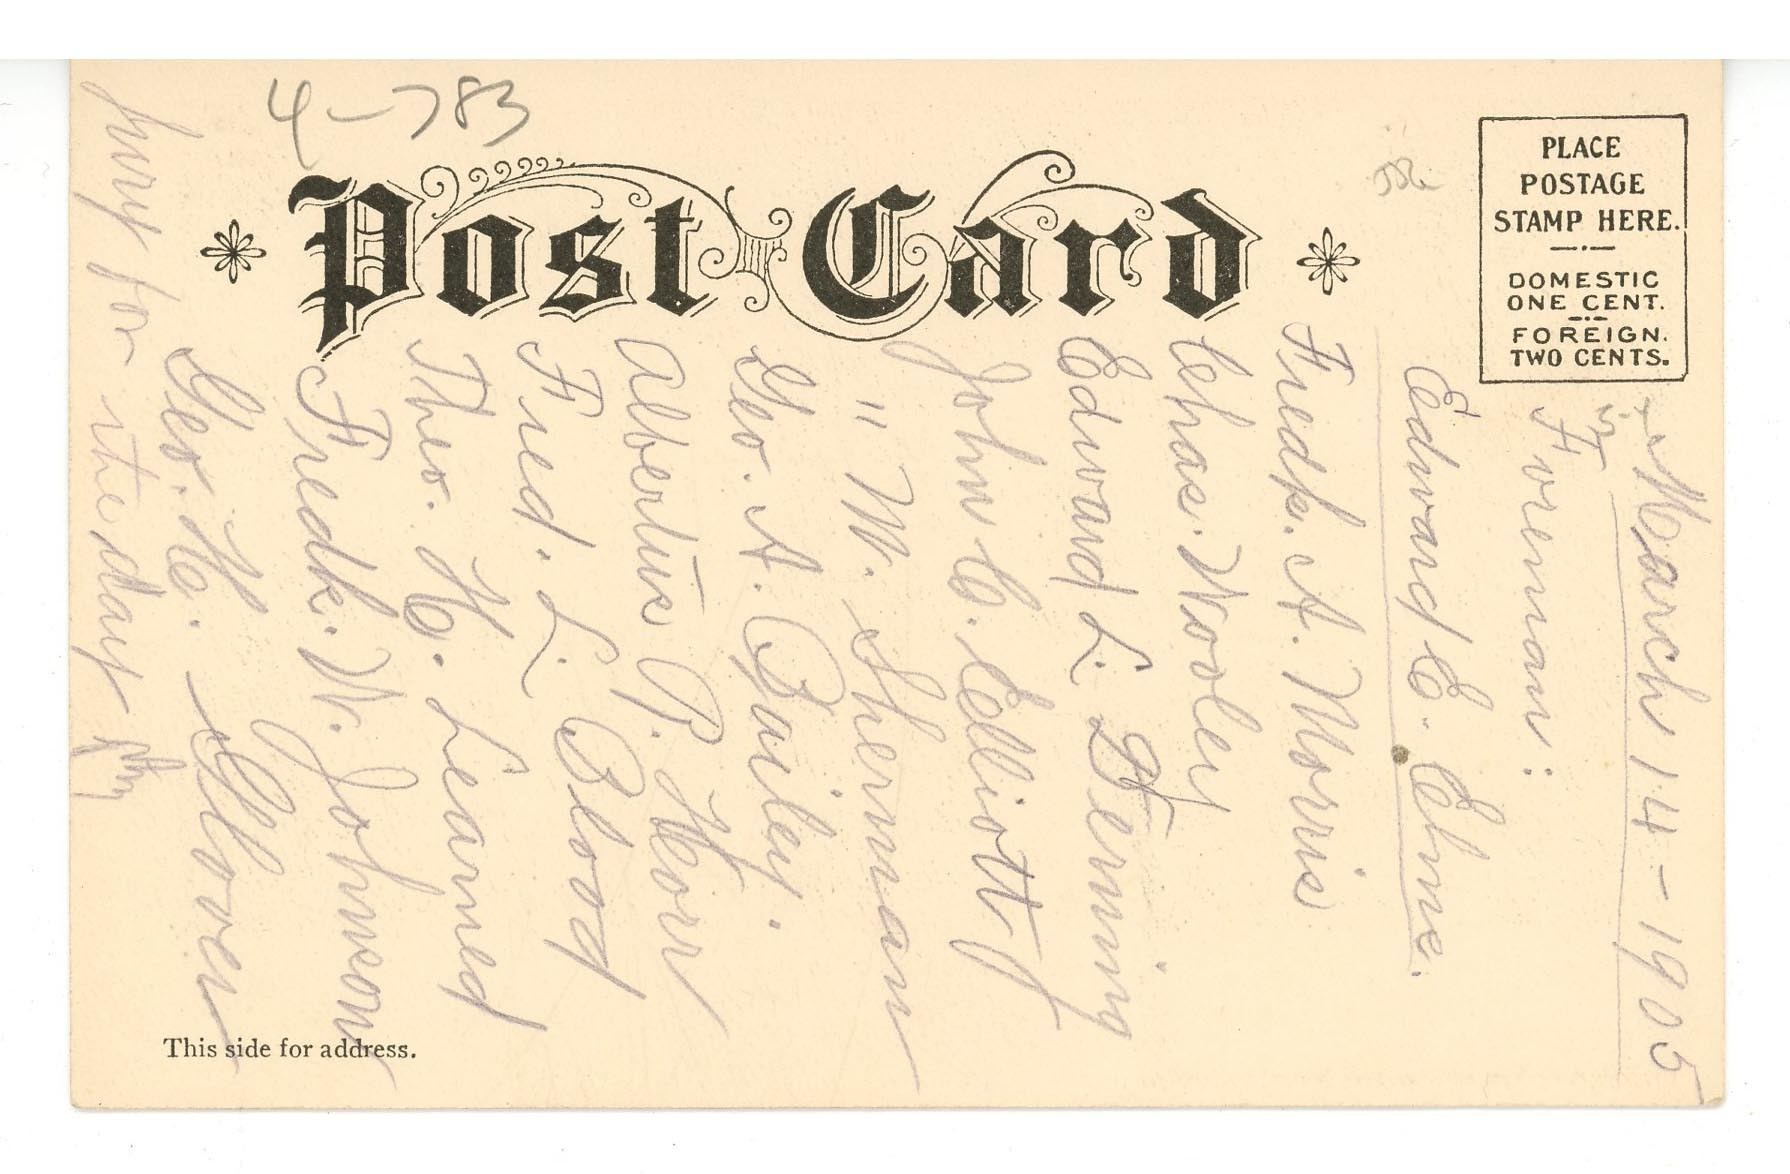 4-783
Post Card
PLACE
POSTAGE
STAMP HERE.
DOMESTIC
ONE CENT.
FOREIGN.
TWO CENTS.
This side for address.
March 14-1905
Foreman:
Edward C. Elms.
Fredk. A. Morris
Chas. Nooley
Edward L. Deming
John C. Elliott
" W. Sherman
Geo. A. Bailey.
Albertus P. Horr
Fred. L. Blood
Theo. H. Learned
Fredk. W. Johnson
Geo. H. Glover
Jury for the day